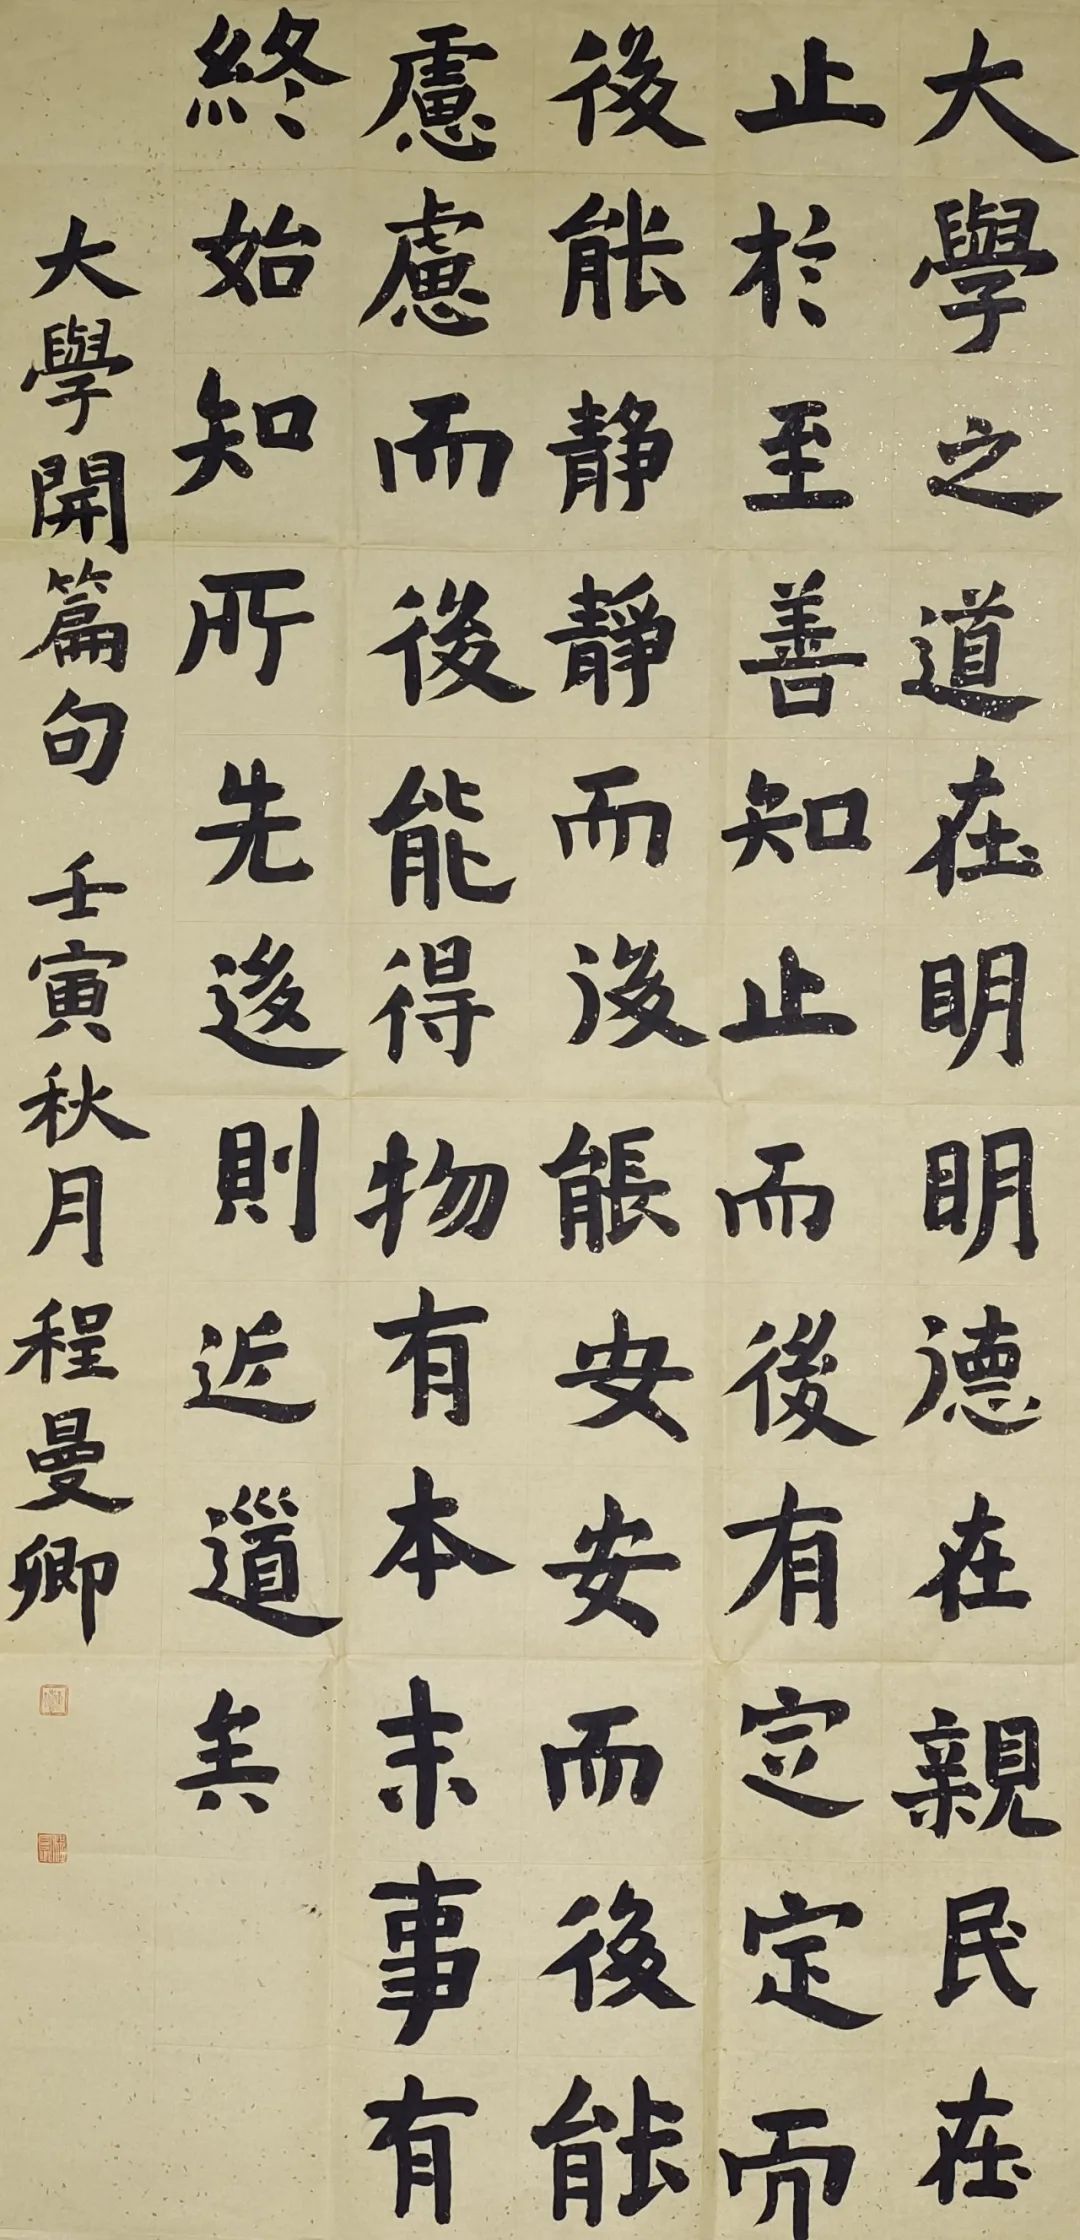 大學之道在明明德在親民在
止於至善知止而後有定定而
後能靜靜而後能安安而後能
慮慮而後能得物有本末事有
終始知所先後則近道矣
大學開篇句 壬寅秋月程曼卿